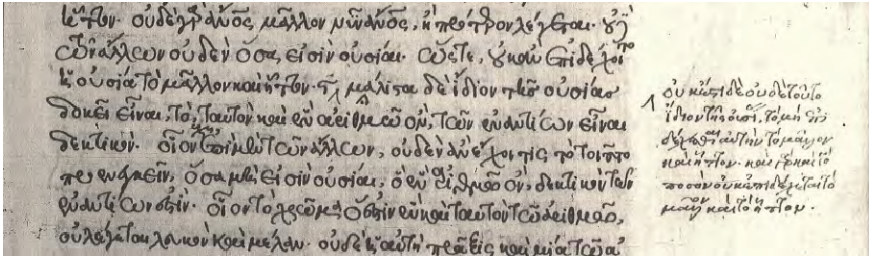 ἧττον. οὐδὲ γὰρ ἄνος μᾶλλον νῦν ἄνος, ἢ πρότερον λέγεται.
τῶν ἄλλων οὐδὲν ὅσα εἰσὶν οὐσίαι. ὥστε, οὐκ ἂν ἐπιδέχοιτο
ἡ οὐσία τὸ μᾶλλον καὶ ἧττον. μάλιστα δὲ ἴδιον τῆς οὐσίας
δοκεῖ εἶναι, τὸ, ταυτὸν καὶ ἓν ἀριθμῷ ὄν, τῶν ἐναντίων εἶναι
δεκτικόν. οἷον ἐπὶ μὲν τῶν ἄλλων, οὐδὲν ἂν ἔχοι τις τὸ τοιοῦτο
προενεγκεῖν, ὅσα μὴ εἰσὶν οὐσίαι, ὃ ἓν ἀριθμῷ ὄν, δεκτικὸν τῶν
ἐναντίων ἐστίν. οἷον τὸ χρῶμα ὅ ἐστιν ἓν καὶ ταυτὸν τῷ ἀριθμῷ,
λευκὸν καὶ μέλαν. οὐδὲ ἡ αὐτὴ πρᾶξις καὶ μία τῷ ἀ
οὐκ ἔτι δὲ οὐδὲ τοῦτο
ἴδιον τῆς οὐσί, τὸ μὴ ἐπι
δέχεσθαι αὐτὴν τὸ μᾶλλον
καὶ ἧττον. καὶ γὰρ καὶ τὸ
ποσὸν οὐκ ἐπιδέχεται τὸ
μᾶλλον καὶ τὸ ἧττον.